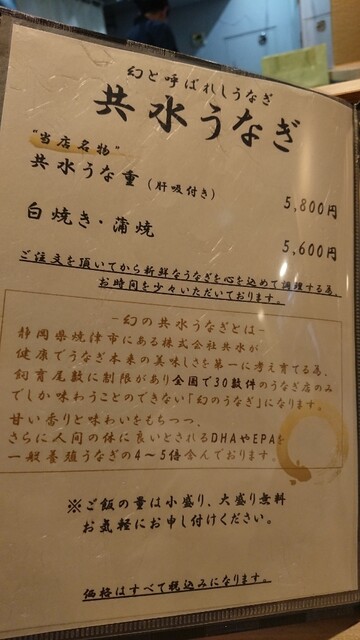 幻と呼ばれしうなぎ
共水うなぎ
"当店名物"
共水うな重(肝吸付き)
5,800円
白焼き・蒲焼
5,600円
ご注文を頂いてから新鮮なうなぎを心を込めて調理する為、
お時間を少々いただいております。
-幻の共水うなぎとは-
静岡県焼津市にある株式会社共水が
健康でうなぎ本来の美味しさを第一に考え育てる為、
飼育尾数に制限があり全国で30数件のうなぎ店のみ
でしか味わうことのできない「幻のうなぎ」になります。
甘い香りと味わいをもちつつ、
さらに人間の体に良いとされるDHAやEPAを
一般養殖うなぎの4~5倍含んでおります。
※ご飯の量は小盛り、大盛り無料
お気軽にお申し付けください。
価格はすべて税込みになります。